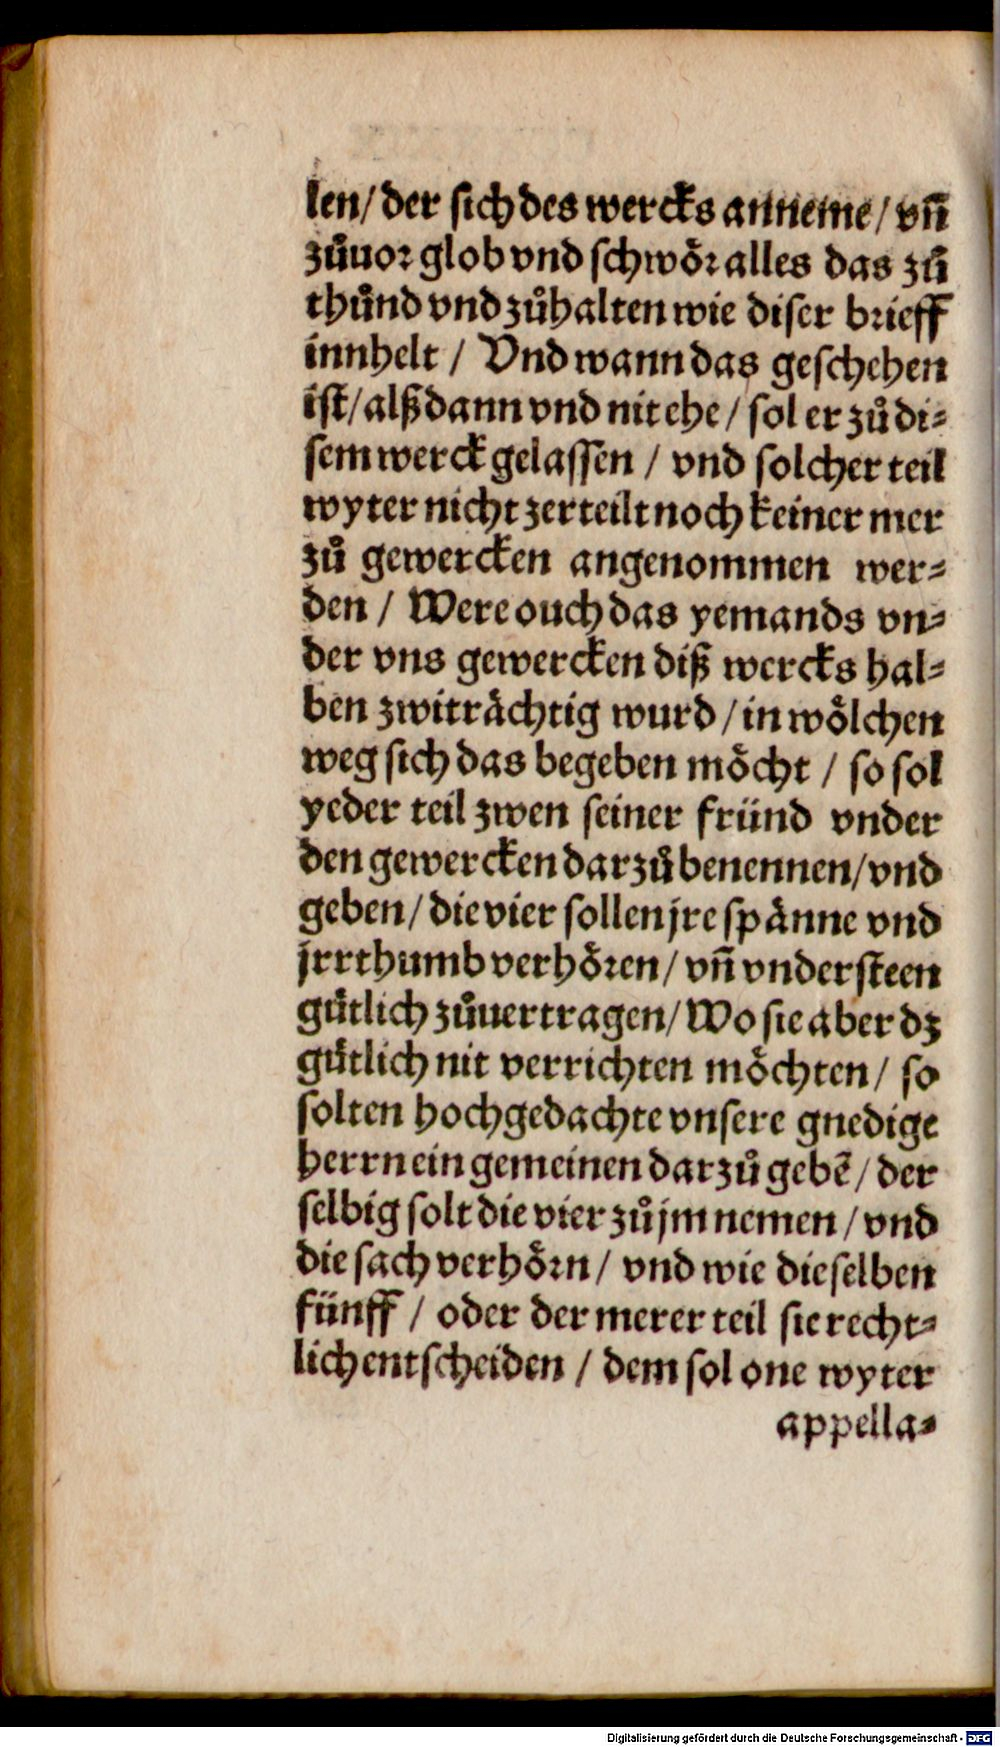 len/ der sich des wercks anneme/ vñ
zůuor glob vnd schwoͤr alles das zů
thůnd vnd zůhalten wie diser brieff
innhelt / Vnd wann das geschehen
ist/ alßdann vnd nit ehe/ sol er zů di⸗
sem werck gelassen / vnd solcher teil
wyter nicht zerteilt noch keiner mer
zů gewercken angenommen wer⸗
den / Were ouch das yemands vn⸗
der vns gewercken diß wercks hal⸗
ben zwitraͤchtig wurd / in woͤlchen
weg sich das begeben moͤcht / so sol
yeder teil zwen seiner fründ vnder
den gewercken darzů benennen/ vnd
geben/ die vier sollen jre spaͤnne vnd
jrrthumb verhoͤren/ vñ vndersteen
guͤtlich zůuertragen/ Wo sie aber dz
guͤtlich nit verrichten moͤchten/ so
solten hochgedachte vnsere gnedige
herrn ein gemeinen darzů gebẽ/ der
selbig solt die vier zů jm nemen / vnd
die sach verhoͤrn/ vnd wie dieselben
fünff / oder der merer teil sie recht⸗
lich entscheiden / dem sol one wyter
appella⸗
Digitalisierung gefördert durch die Deutsche Forschungsgemeinschaft - DFG